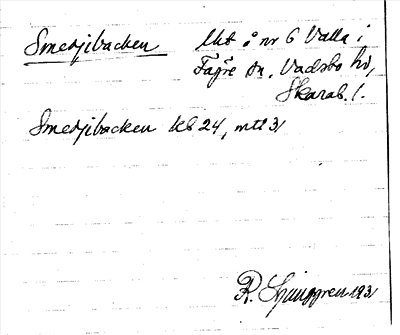 Smedjibacken Ukt å nr 6 Valla i
Fägre sn, Vadsbo hd,
Skarab. l.
Smedjibacken kb 24, mtl 31
R. Ljunggren 1931